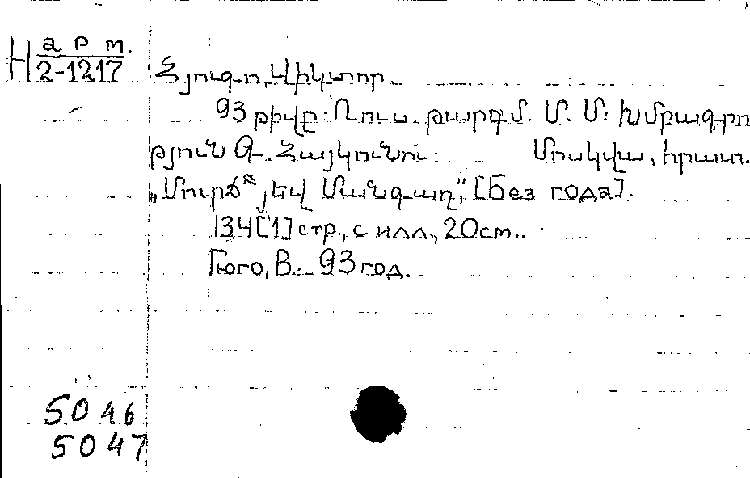 Н арт.
2-1217
Հյուգո, Վիկտոր.
93 թիվը. Ռուս. թարգմ. Մ. Մ. Խմբագրո
թյուն Գ. Հայկունու. Մոսկվա, հրատ.
„Մուրճ“ յեվ Մանգաղ“, [Без года].
134 [1] стр., с илл., 20см..
Гюго, В. _ 93 год.
5046
5047